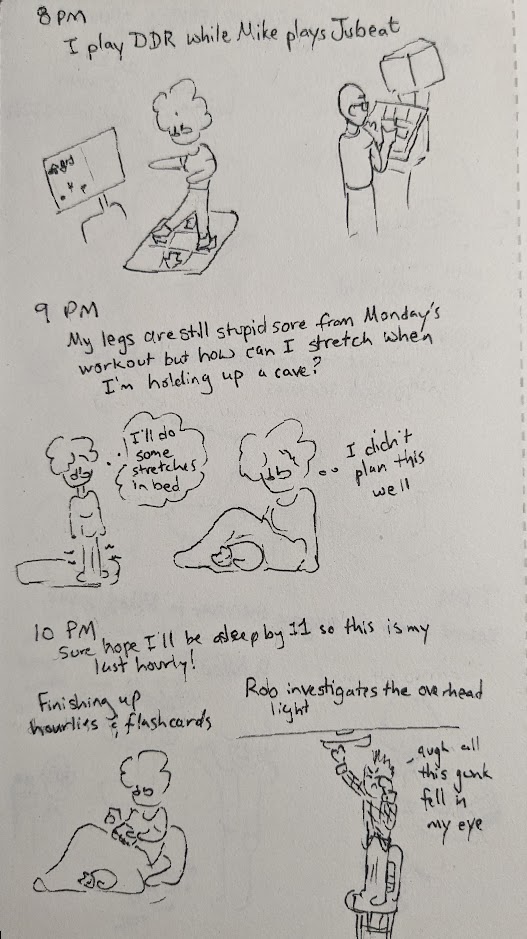 8 PM
I play DDR while Mike plays Jubeat
9 PM
My legs are still stupid sore from Monday's
workout but how can I stretch when
I'm holding up a cave?
I'll do
some
stretches
in bed
I didn't
plan this
well
10 PM
Sure hope I'll be asleep by 11 so this is my
last hourly!
Finishing up
hourlies & flashcards
Rob investigates the overhead
light
augh all
this gunk
fell in
my eye